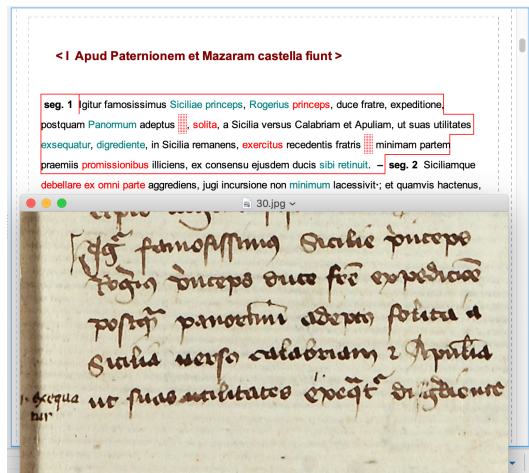 < I Apud Paternionem et Mazaram castella fiunt >
seg. 1 Igitur famosissimus Siciliae princeps, Rogerius princeps, duce fratre, expeditione,
postquam Panormum adeptus , solita, a Sicilia versus Calabriam et Apuliam, ut suas utilitates
exsequatur, digrediente, in Sicilia remanens, exercitus recedentis fratris minimam partem
praemiis promissionibus illiciens, ex consensu ejusdem ducis sibi retinuit. – seg. 2 Siciliamque
debellare ex omni parte aggrediens, jugi incursione non minimum lacessivit·; et quamvis hactenus,
30.jpg
Igr̃ famosissimus Sicilie p̃nceps
Rog̃ius p̃nceps duce frẽ expedicioẽ
postq̃ panormũ adeptus solita a
Sicilia verso calabriam ⁊ Apuliã
exequa
tur
ut suas utilitates exeq̃t᷑ dig̃diente